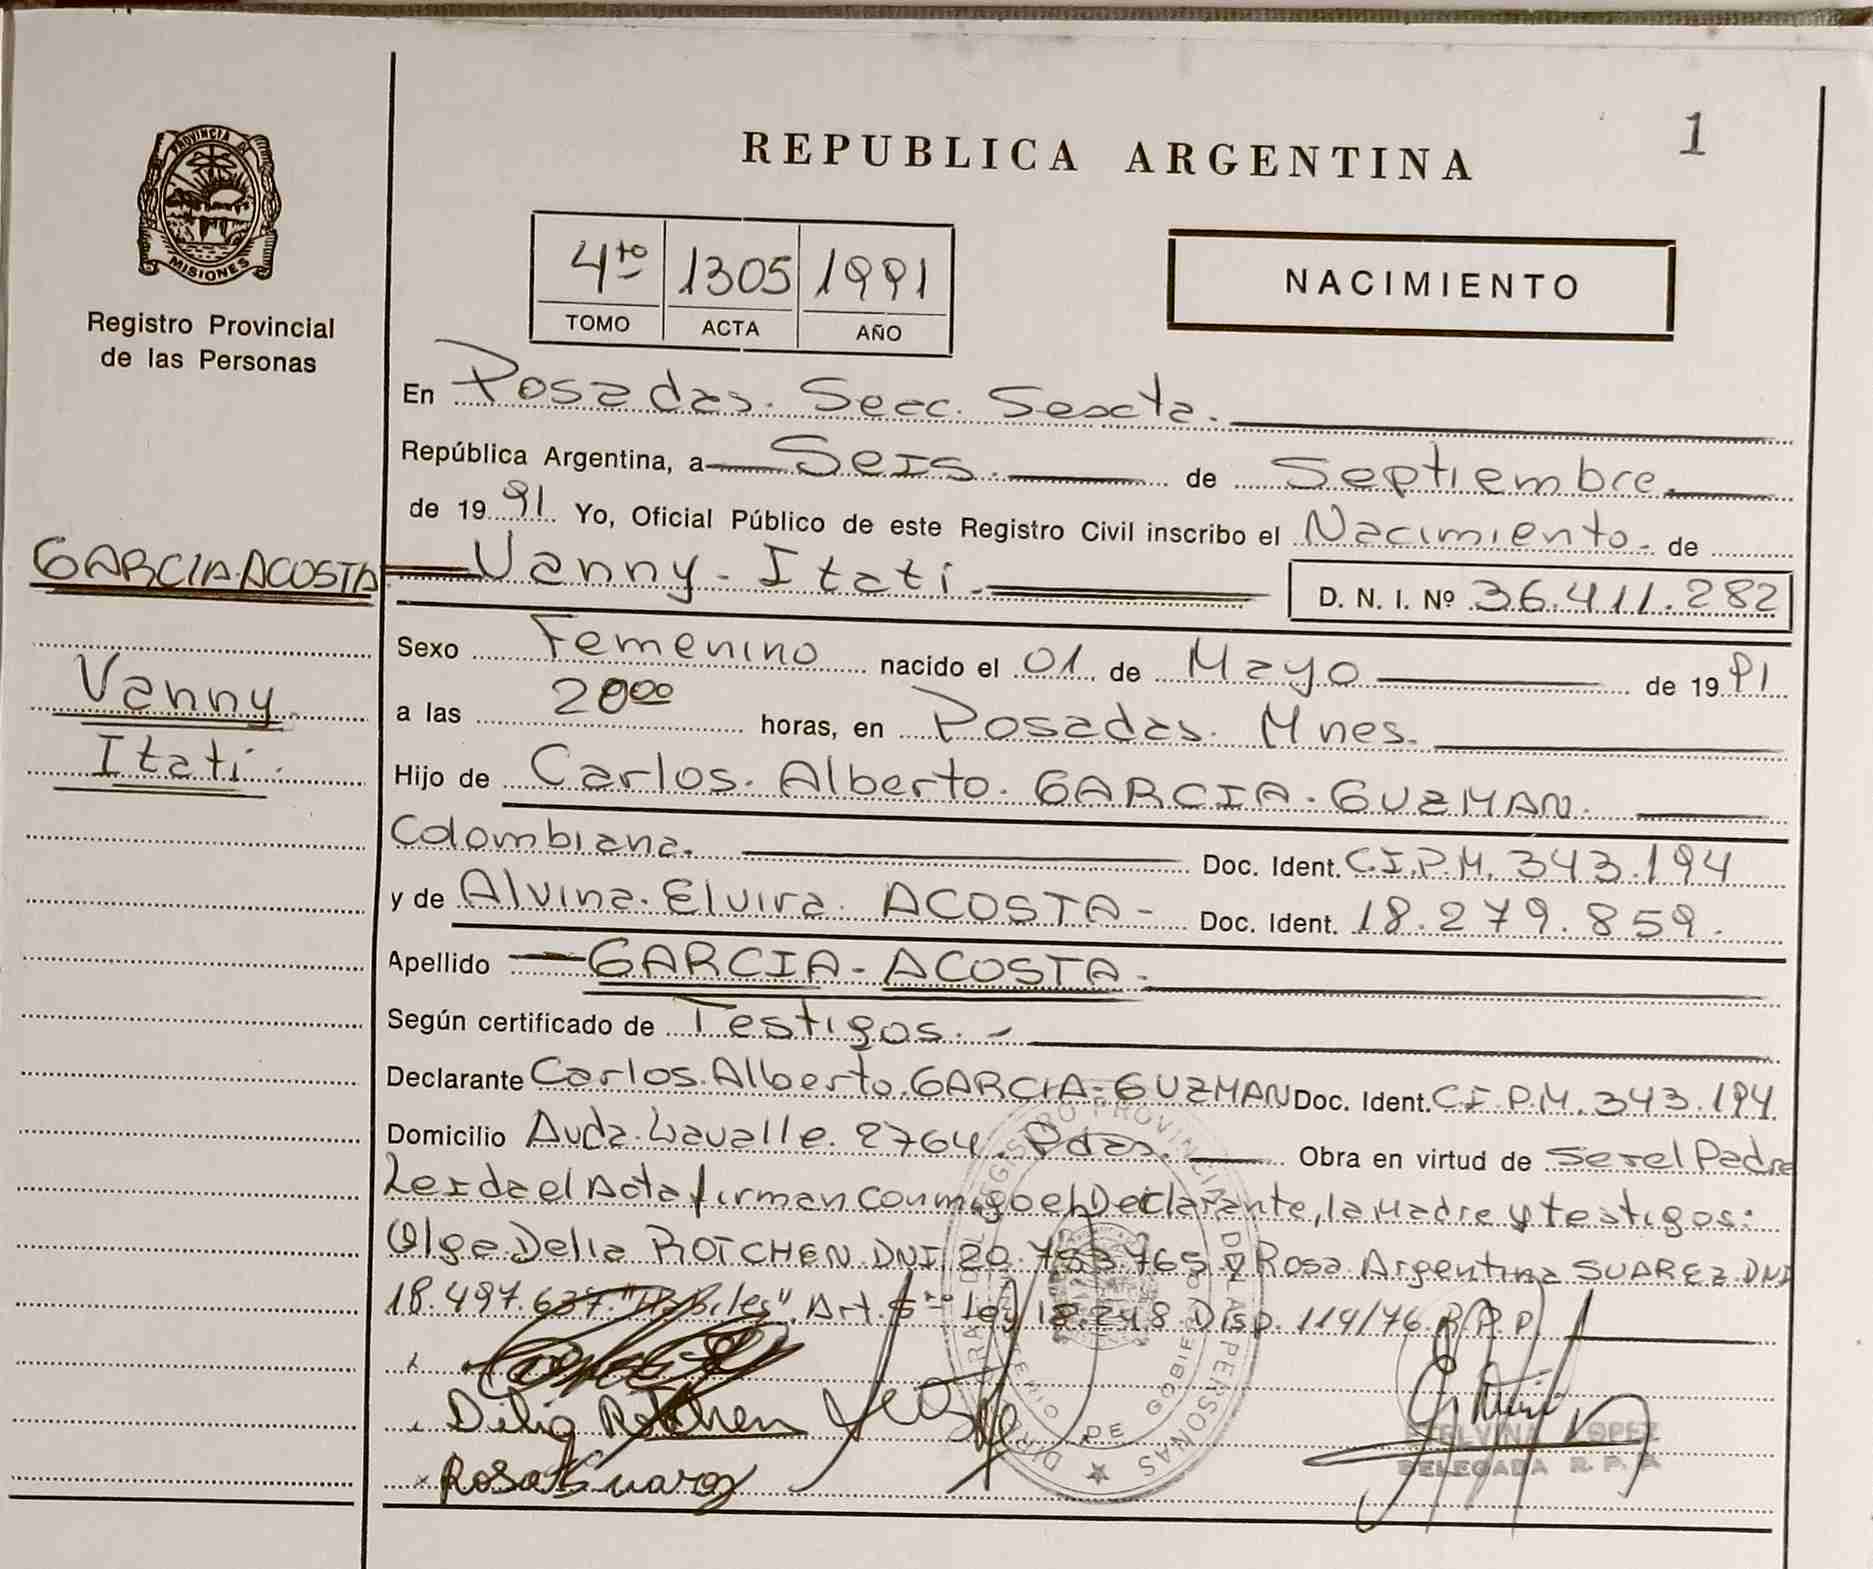 1
REPUBLICA ARGENTINA
PROVINCIA DE
MISIONES
Registro Provincial
de las Personas
4to 1305 1991
TOMO ACTA AÑO
NACIMIENTO
En Posadas. Secc. Sexta.
República Argentina, a Seis. de Septiembre.
de 1991. Yo, Oficial Público de este Registro Civil inscribo el Nacimiento. de
GARCIA.ACOSTA
Vanny
Itatí.
Vanny. Itatí.
D. N. I. Nº 36.411.282
Sexo Femenino nacido el 01 de Mayo de 1991
a las 20oo horas, en Posadas. Mnes.
Hijo de Carlos. Alberto. GARCIA. GUZMAN.
Colombiana. Doc. Ident. C.I.P.M. 343.194
y de Alvina. Elvira. ACOSTA- Doc. Ident. 18.279.859.
Apellido GARCIA-ACOSTA-
Según certificado de Testigos.-
Declarante Carlos.Alberto.GARCIA-GUZMAN Doc. Ident. C.I.P.M. 343.194
Domicilio Avda. Lavalle. 2764. Pdas. Obra en virtud de Ser el Padre
Leida el Acta firman conmigo el Declarante, la Madre y testigos:
Olga Delia ROTCHEN DNI 20.753.765 y Rosa Argentina SUAREZ DNI
18.497.637. Art. 5to Ley 18.248 Disp. 114/76 R.P.P.
Rotchen
Rosa Suarez
DIRECCION REGISTRO PROVINCIAL DE LAS PERSONAS
DE GOBIERNO
LOPEZ
DELEGADA R. P. P.